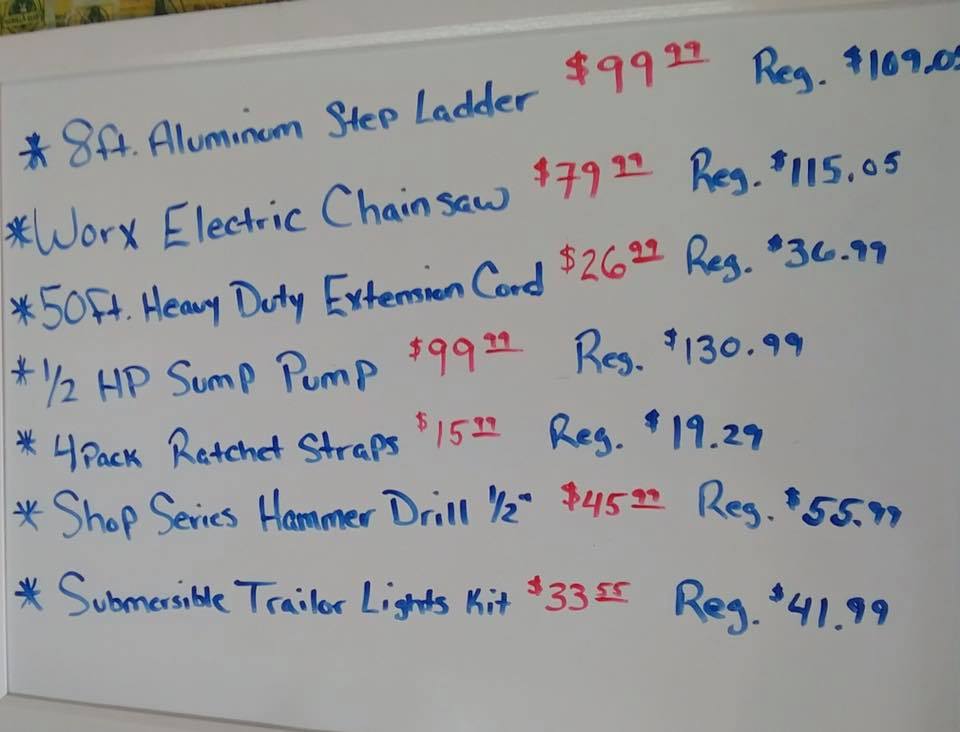 * 8ft. Aluminum Step Ladder $99 99 Reg. $109.05
* Worx Electric Chainsaw $79 99 Reg. $115.05
* 50ft. Heavy Duty Extension Cord $26 99 Reg. $36.99
* 1/2 HP Sump Pump $99 99 Reg. $130.99
* 4 Pack Ratchet Straps $15 99 Reg. $19.29
* Shop Series Hammer Drill 1/2" $45 99 Reg. $55.99
* Submersible Trailor Lights Kit $33 55 Reg. $41.99